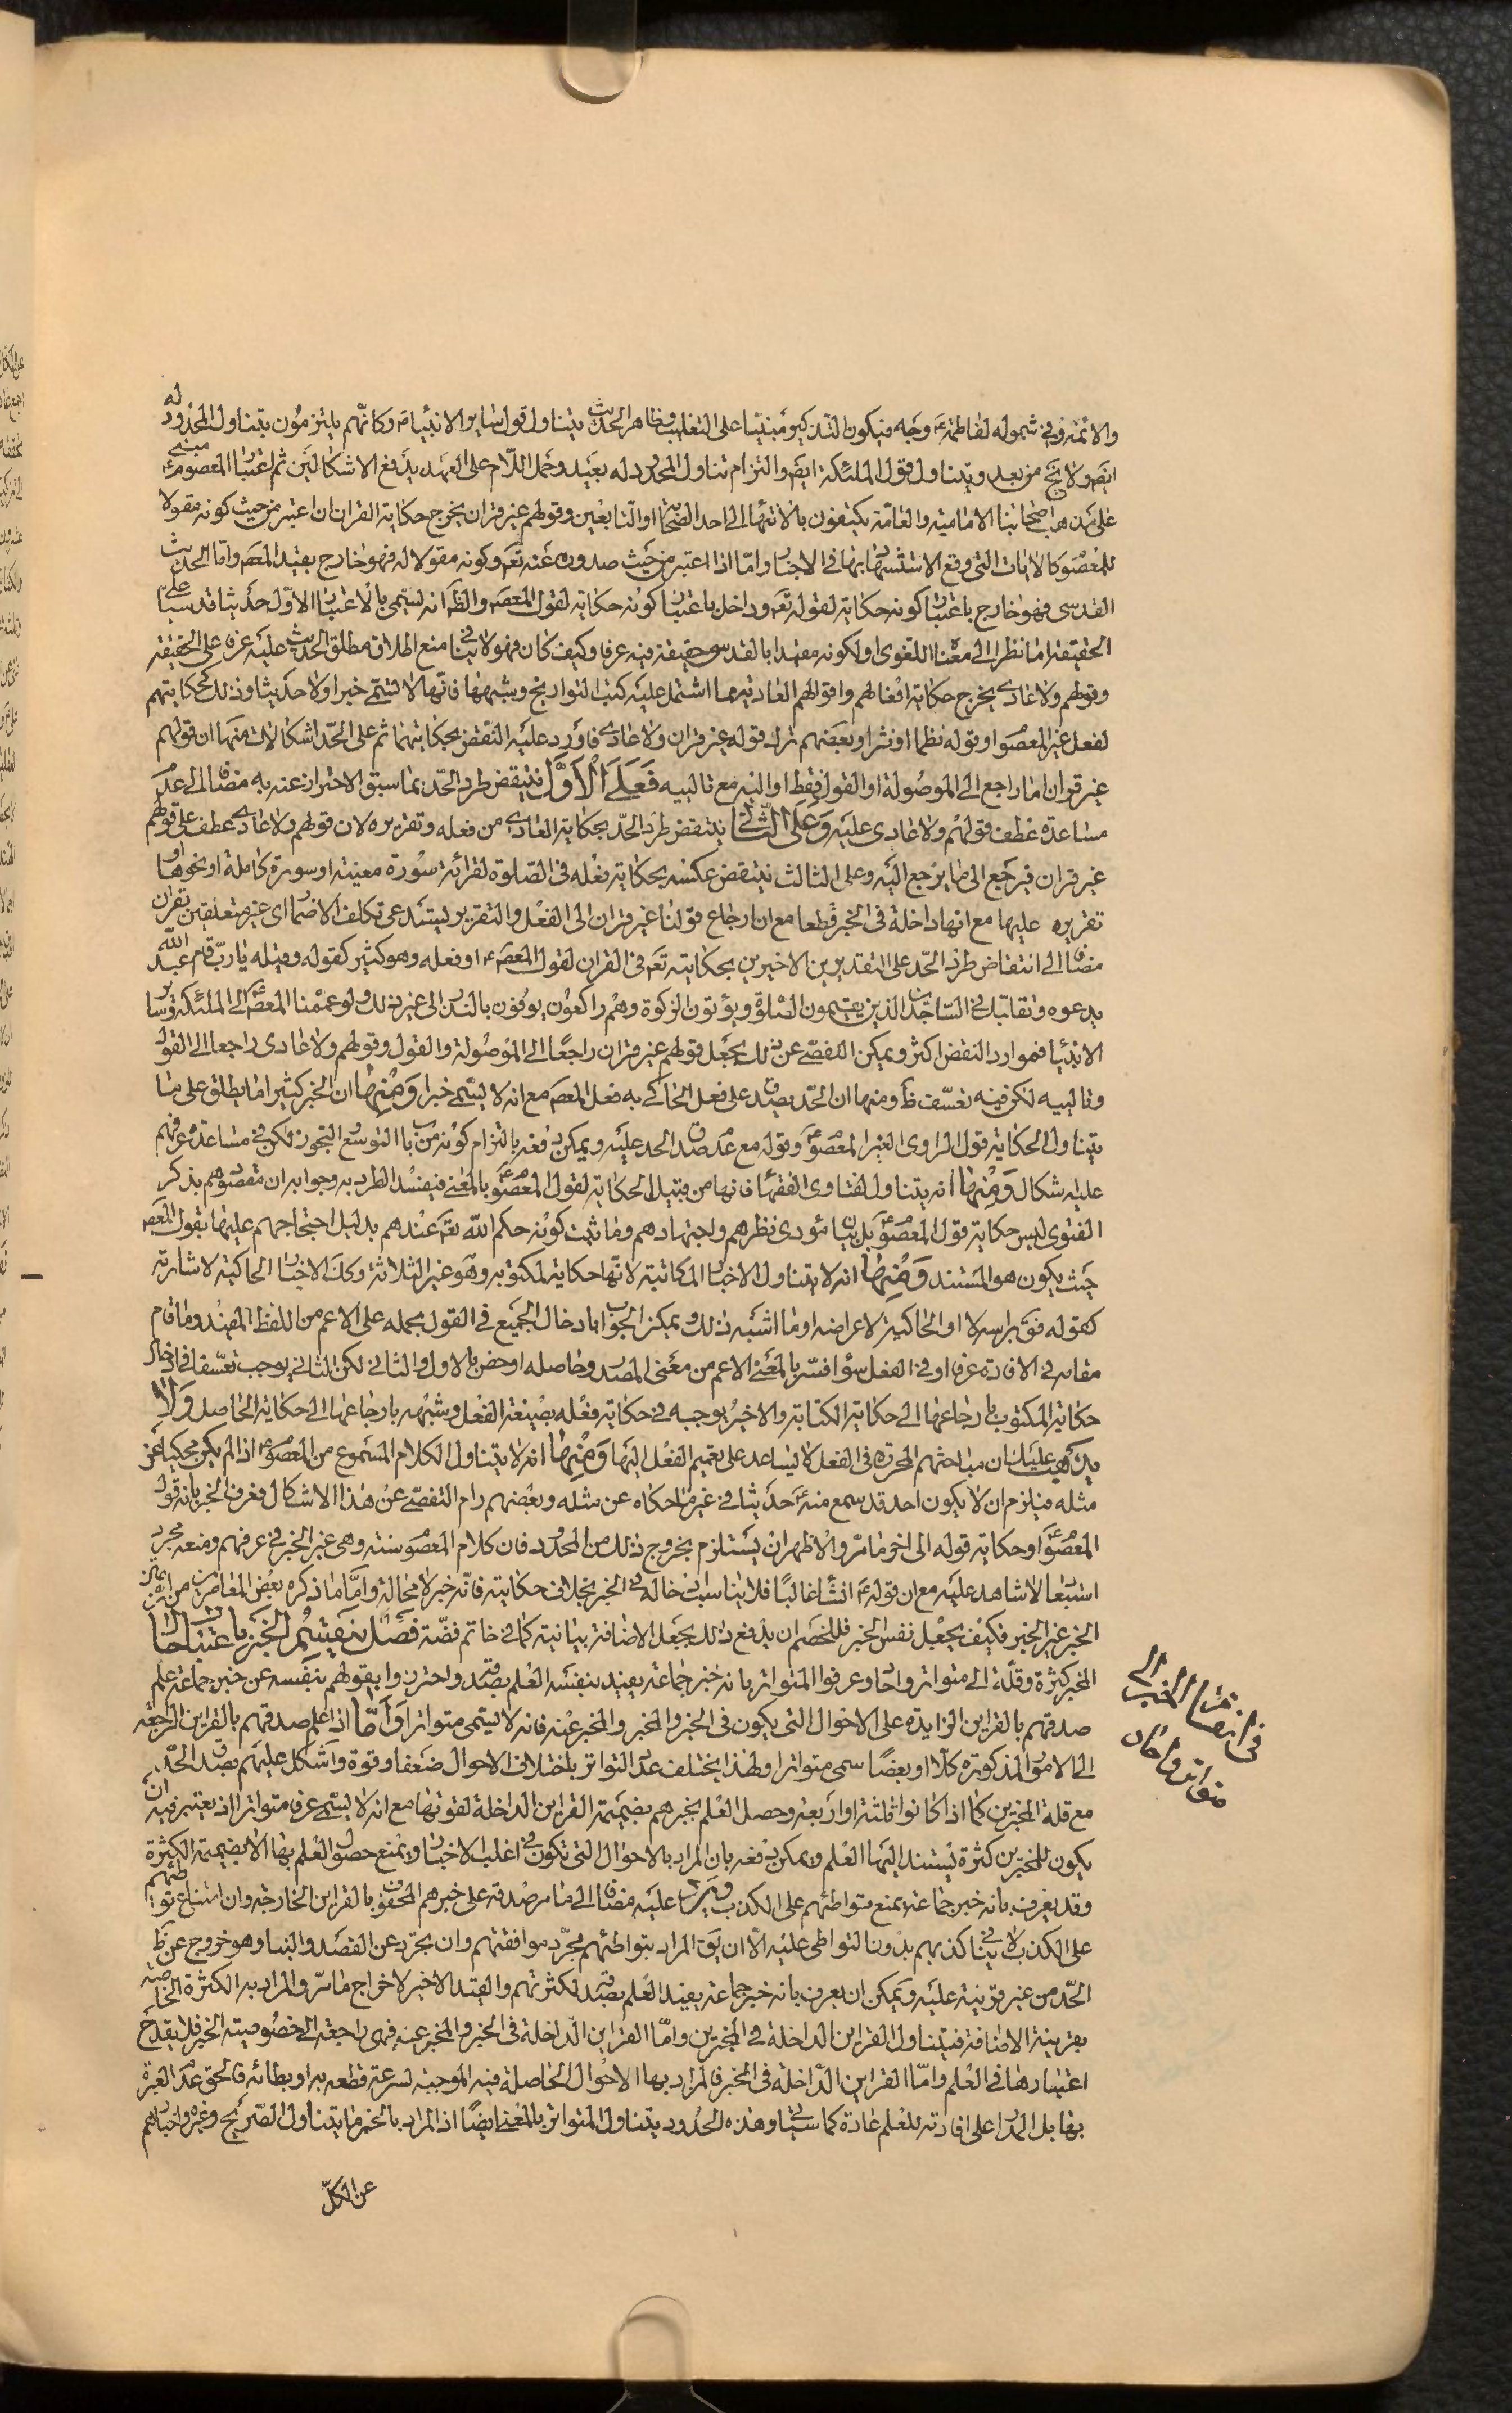 والائمة وفي شموله لفاطمة ع وجه فيكون التذكير مبنيا على التغليب وظاهر الحديث يتناول قول ساير الانبياء وكانهم يلتزمون بتناول المحدود له
ايضا ولا يخ من بعد ويتناول قول الملئكة ايضا والتزام تناول المحدود له بعيد وحمل اللام على العهد يدفع الاشكالين ثم اعتبار المعصوم مبني
على مذهب اصحابنا الامامية والعامة يكتفون بالانتهاء الى احد الصحابة او التابعين وقولهم غير قران يخرج حكاية القران ان اعتبر من حيث كونه مقولا
للمعصوم كالايات التي وقع الاستشهاد بها في الاخبار واما اذا اعتبر من حيث صدوره عنه تع وكونه مقولا له فهو خارج بقيد المعصوم واما الحديث
القدسي فهو خارج باعتبار كونه حكاية لقوله تع وداخل باعتبار كونه حكاية لقول المعصوم والظ انه يسمى بالاعتبار الاول حديثا قدسيا على
الحقيقة اما نظرا الى معناه اللغوي او لكونه مقيدا بالقدسي حقيقة فيه عرفا وكيف كان فهو لا ينافي منع اطلاق مطلق الحديث عليه عرفا على الحقيقة
وقولهم ولا عادي يخرج حكاية افعالهم واقوالهم العادية مما اشتمل عليه كتب التواريخ وشبهها فانها لا تسمى خبرا ولا حديثا وذلك كحكايتهم
لفعل غير المعصوم او قوله نظما او نثرا وبعضهم ترك قوله غير قران ولا عادي فاورد عليه النقض بحكايتهما ثم على الحد اشكالات منها ان قولهم
غير قران اما راجع الى الموصولة او القول فقط او اليه مع تالييه فعلى الاول ينتقض طرد الحد بما سبق الاحتراز عنه به مضافا الى عدم
مساعدة عطف قولهم ولا عادي عليه وعلى الثاني ينتقض طرد الحد بحكاية العادي من فعله وتقريره لان قولهم ولا عادي عطف على قولهم
غير قران فيرجع الى ما يرجع اليه وعلى الثالث ينتقض عكسه بحكاية فعله في الصلوة لقرائة سورة معينة او سورة كاملة او نحوها او
تقريره عليها مع انها داخلة في الخبر قطعا مع ان ارجاع قولنا غير قران الى الفعل والتقرير يستدعي تكلف الاضمار اي غير متعلقين بقران
مضافا الى انتقاض طرد الحد على التقديرين الاخيرين بحكايته تع في القران لقول المعصوم او فعله وهو كثير كقوله وقيله يا رب قام عبد الله
يدعوه وتقلبك في الساجدين الذين يقيمون الصلوة ويؤتون الزكوة وهم راكعون يوفون بالنذر الى غير ذلك ولو عممنا المعصوم الى الملئكة وساير
الانبياء فموارد النقض اكثر ويمكن التفصي عن ذلك بجعل قولهم غير قران راجعا الى الموصولة والقول وقولهم ولا عادي راجعا الى القول
وتالييه لكن فيه تعسف ظ ومنها ان الحد يصدق على فعل الحاكي به فعل المعصوم مع انه لا يسمى خبرا ومنها ان الخبر كثيرا ما يطلق على ما
يتناول الحكاية قول الراوي الغير المعصوم وقوله مع عدم صدق الحد عليه ويمكن دفعه بالتزام كونه من باب التوسع والتجوز لكن في مساعدة عرفهم
عليه شكال ومنها انه يتناول لفتاوى الفقهاء فانها من قبيل الحكاية لقول المعصوم بالمعنى فيفسد الطرد به وجوابه ان مقصودهم بذكر
الفتوى ليس حكاية قول المعصوم بل بيان مؤدى نظرهم واجتهادهم وما ثبت كونه حكم الله تع عندهم بدليل احتجاجهم عليها بقول المعصوم
حيث يكون هو المستند ومنها انه لا يتناول الاخبار المكاتبية لانها حكاية لمكتوبه وهو غير الثلاثة وكذا الاخبار الحاكية لاشارته
كقوله فق براسه لا او الحاكية لاعراضه او ما اشبه ذلك ويمكن الجواب بادخال الجميع في القول بحمله على الاعم من اللفظ المفيد وما قام
مقامه في الافادة عرفا او في الفعل سواء فسر بالمعنى الاعم من معنى المصدر وحاصله او خص بالاول والثاني لكن الثاني يوجب تعسفا في ادخال
حكاية المكتوب بارجاعها الى حكاية الكتابة والاخير يوجبه في حكاية فعله بصيغة الفعل وشبهه بارجاعها الى حكاية الحاصل ولا
يذهب عليك ان مباحثهم المحررة في الفعل لا يساعد على تعميم الفعل اليها ومنها انه لا يتناول الكلام المسموع من المعصوم اذا لم يكن محكيا عن
مثله فيلزم ان لا يكون احد قد سمع منه ع حديثا في غير ما حكاه عن مثله وبعضهم رام التفصي عن هذا الاشكال فعرف الخبر بانه قول
المعصوم او حكاية قوله الى اخر ما مر والاظهر ان يستلزم بخروج ذلك من المحدود فان كلام المعصوم سنته وهي غير الخبر في عرفهم ومنعه مجرد
استبعاد لا شاهد عليه مع ان قوله ع انشاء غالبا فلا يناسب ادخاله في الخبر بخلاف حكايته فانه خبر لا محالة واما ما ذكره بعض المعاصرين من ان
الخبر غير الخبر فكيف يجعل نفس الخبر فللخصم ان يدفع ذلك بجعل الاضافة بيانية كما في خاتم فضة فصل ينقسم الخبر باعتبار
المخبر كثرة وقلة الى متواتر واحاد وعرفوا المتواتر بانه خبر جماعة يفيد بنفسه العلم بصدقه واحترزوا بقولهم بنفسه عن خبر جماعة علم
صدقهم بالقراين الزايدة على الاحوال التي يكون في الخبر والمخبر والمخبر عنه فانه لا يسمى متواترا واما اذا علم صدقهم بالقراين الراجعة
الى الامور المذكورة كلا او بعضا سمي متواترا ولهذا يختلف عدد التواتر باختلاف الاحوال ضعفا وقوة واشكل عليهم بصدق الحد
مع قلة المخبرين كما اذا كانوا ثلثة او اربعة وحصل العلم بخبرهم بضميمة القراين الداخلة لقوتها مع انه لا يسمى عرفا متواترا اذ يعتبر فيه ان
يكون للمخبرين كثرة يستند اليها العلم ويمكن دفعه بان المراد بالاحوال التي تكون في اغلب الاخبار ويمنع حصول العلم بها الا بضميمة الكثرة
وقد يعرف بانه خبر جماعة يمنع تواطئهم على الكذب ويرد عليه مضافا الى ما مر صدقه على خبرهم المحفوف بالقراين الخارجة وان امتناع تواطئهم
على الكذب لا ينافي كذبهم بدون التواطي عليه الا ان يق المراد بتواطئهم مجرد موافقتهم وان تجرد عن القصد والبناء وهو خروج عن ظ
الحد من غير قرينة عليه ويمكن ان يعرف بانه خبر جماعة يفيد العلم بصدقه لكثرتهم والقيد الاخير لاخراج ما مر والمراد به الكثرة الخاصة
بقرينة الاضافة فيتناول القراين الداخلة في المخبرين واما القراين الداخلة في الخبر والمخبر عنه فهي راجعة الى خصوصية الخبر فلا يقدح
اعتبارها في العلم واما القراين الداخلة في المخبر فالمراد بها الاحوال الحاصلة فيه الموجبة لسرعة قطعه به او بطائه فالحق عدم العبرة
بها بل المدار على افادته للعلم عادة كما سياتي وهذه الحدود يتناول المتواتر بالمعنى ايضا اذ المراد بالخبر ما يتناول الصريح وغيره واخبارهم
عن الكل
في انقسام الخبر الى
متواتر واحاد